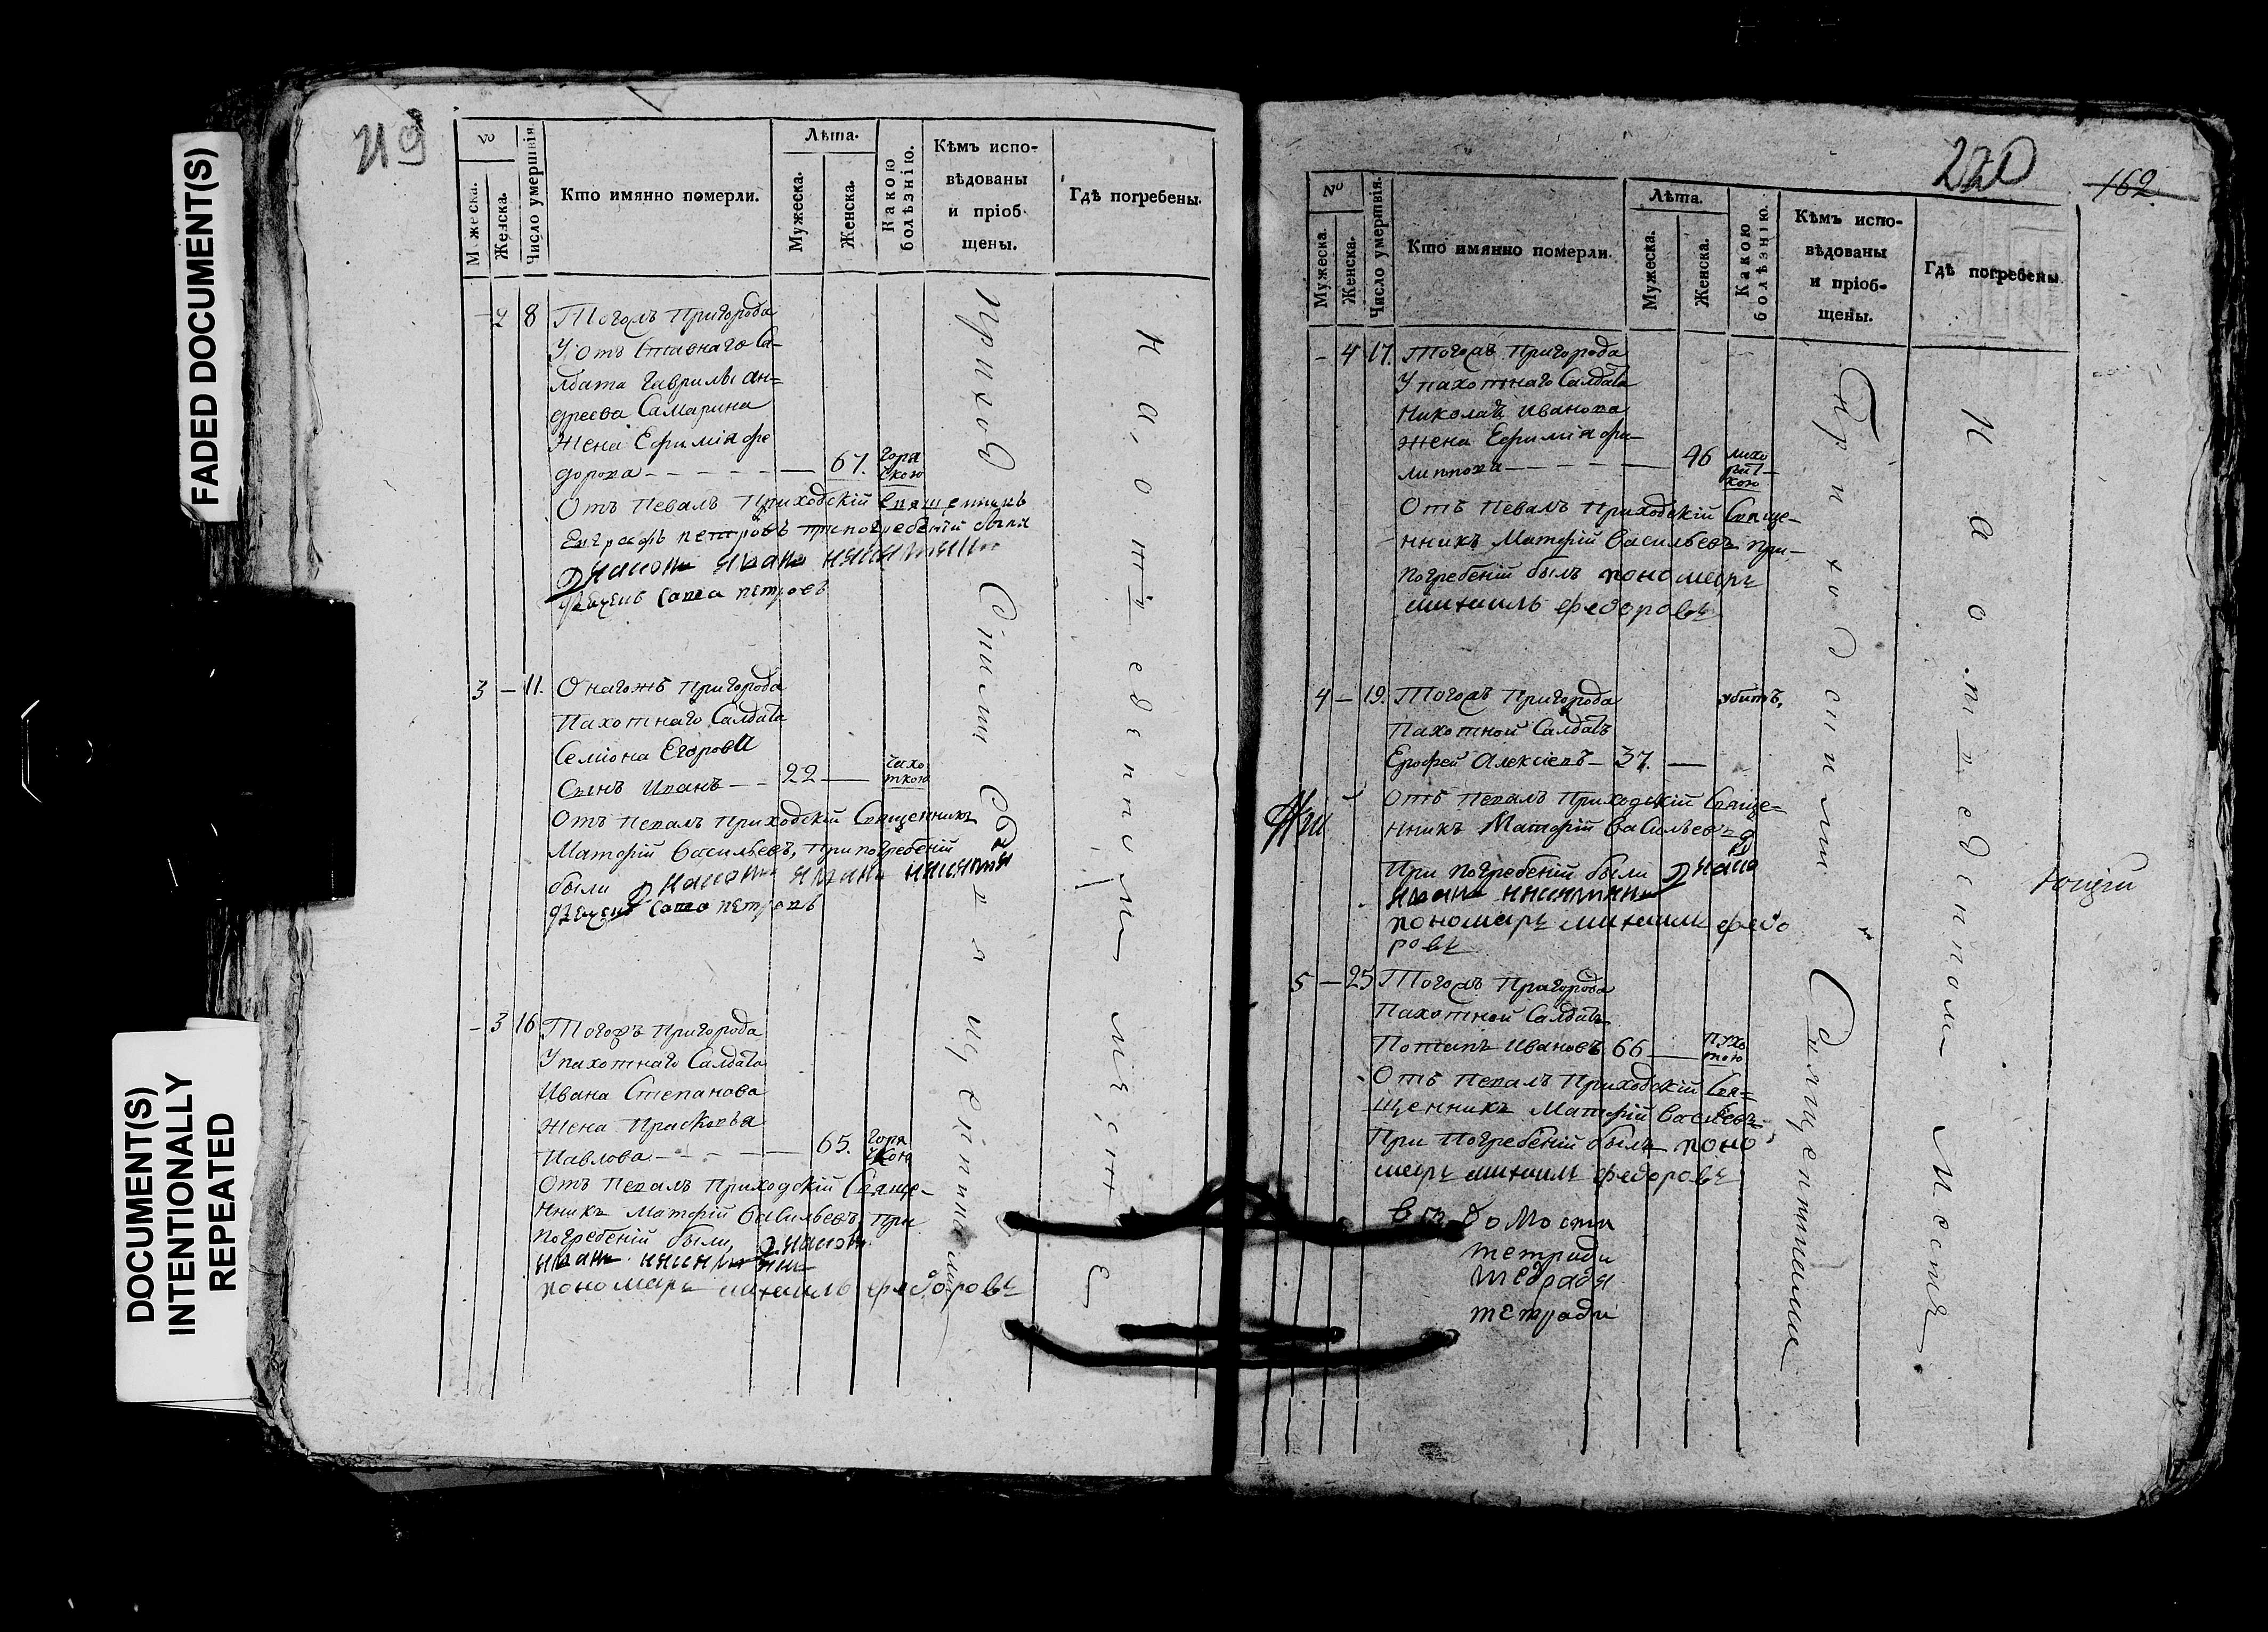 FADED DOCUMENT(S)
DOCUMENT(S)
INTENTIONALLY
REPEATED
219
№
М жеска.
Женска.
Число умертвія.
Кто имянно померли.
Лѣта.
Мужеска.
Женска.
Какою
болѣзнію.
Кѣмъ испо-
вѣдованы
и пріоб-
щены.
Гдѣ погребены.
- 2 8 Тогожъ Пригорода
У отъ Ставнаго Са-
лдата Гаврилы ан=
дреева Самарина
Жена Ефимія фе
дорова - - - - - — 67. горя
чкою
Отъ Певалъ Приходскій Священникъ
Евграфъ петровъ при погребеній были
Дьяконъ Иванъ
петровъ
3 - 11. Онагожъ Пригорода
Пахотнаго Салдата
Семіона Егорова
Сынъ Иванъ - - 22 — чахо
ткою
Отъ Певалъ Приходскій Священникъ
Матфій Васильевъ, При погребеній
были Дьяконъ Иванъ
петровъ
- 3 16 Тогожъ Пригорода
У пахотнаго Салдата
Ивана Степанова
Жена Прасковья
Павлова - - - - — 65. горя
чкою
Отъ Певалъ Приходскій Свяще-
нникъ Матфій Васильевъ, При
погребеній были, Дьяконъ
Иванъ
пономарь михаилъ федоровъ
220
162.
№
Мужеска
Женска.
Число умертвія.
Кто имянно померли.
Лѣта.
Мужеска.
Женска.
Какою
болѣзнію.
Кѣмъ испо-
вѣдованы
и пріоб-
щены.
Гдѣ погребены
- 4 17. Тогожъ Пригорода
У пахотнаго Салдата
Николая Иванова
жена Ефимія фи-
липпова - - - - — 46 лихо
рат-
кою
Отъ Певалъ Приходскій Свяще-
нникъ Матфій Васильевъ При-
погребеній былъ пономарь
михаилъ федоровъ
4 - 19. Тогожъ Пригорода убитъ.
Пахотной Салдатъ
Ерофей Алексіевъ - 37. —
Отъ Певалъ Приходскій Свяще=
нникъ Матфій Васильевъ
При погребеній были Дьяко
Иванъ
пономарь михаилъ федо
ровъ
5 - 25 Тогожъ Пригорода
Пахотной Салдатъ
Потапъ Ивановъ 66 — пухо
тою
Отъ Певалъ Приходскій Свя=
щенникъ Матфій Васильевъ
При Погребеній былъ поно
марь михаилъ федоровъ
тетради
тетради
Приходскимъ Священникомъ
Приходскимъ Священникомъ